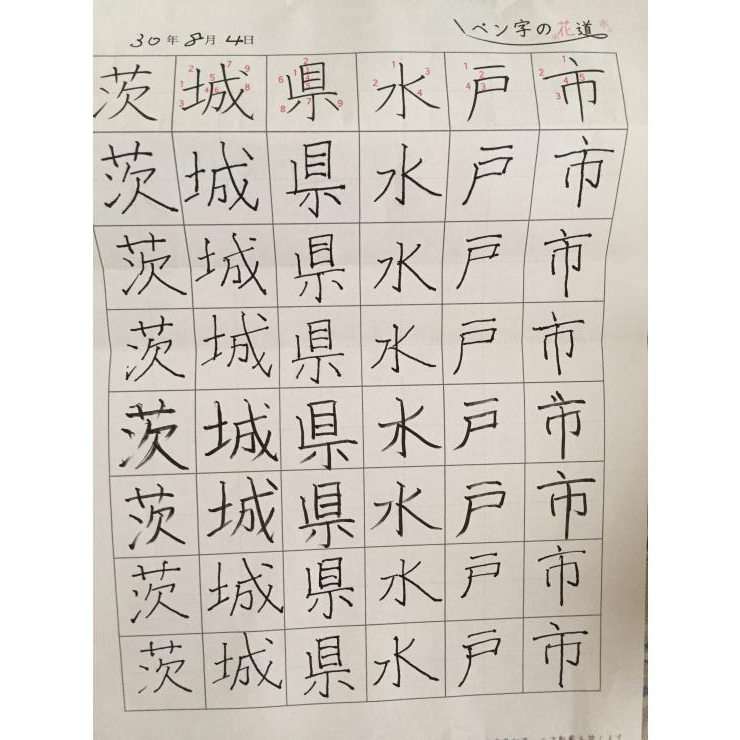 30年8月4日
ペン字の花道
茨城県水戸市
茨城県水戸市
茨城県水戸市
茨城県水戸市
茨城県水戸市
茨城県水戸市
茨城県水戸市
茨城県水戸市